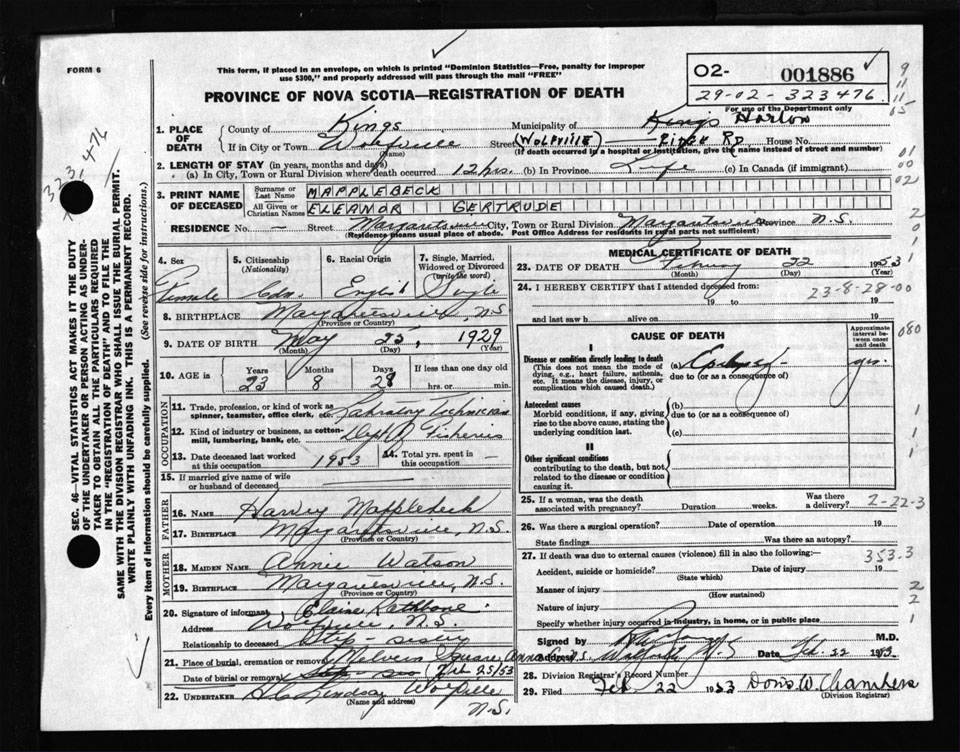 FORM 6
This form, if placed in an envelope, on which is printed "Dominion Statistics—Free, penalty for improper
use $300," and properly addressed will pass through the mail "FREE"
PROVINCE OF NOVA SCOTIA—REGISTRATION OF DEATH
02- 001886
29-02-323476
For use of the Department only
323,476
9
11
11
65
01
00
02
2
0
1
SEC. 46—VITAL STATISTICS ACT MAKES IT THE DUTY
OF THE UNDERTAKER OR PERSON ACTING AS UNDER-
TAKER TO OBTAIN ALL THE PARTICULARS REQUIRED
IN THE "REGISTRATION OF DEATH" AND TO FILE THE
SAME WITH THE DIVISION REGISTRAR WHO SHALL ISSUE THE BURIAL PERMIT.
WRITE PLAINLY WITH UNFADING INK. THIS IS A PERMANENT RECORD.
Every item of information should be carefully supplied. (See reverse side for instructions.)
1. PLACE OF DEATH
County of Kings Municipality of Kings Horton
If in City or Town Wolfville (Name) Street (WOLFVILLE) — RIDGE RD House No.
(If death occurred in a hospital or institution, give the name instead of street and number)
2. LENGTH OF STAY (in years, months and days)
(a) In City, Town or Rural Division where death occurred 12 hrs. (b) In Province Life (c) In Canada (if immigrant)
3. PRINT NAME OF DECEASED
Surname or Last Name MAPPLEBECK
All Given or Christian Names ELEANOR GERTRUDE
RESIDENCE No. — Street Margaretsville City, Town or Rural Division Margaretsville Province N.S.
(Residence means usual place of abode. Post Office Address for residents in rural parts not sufficient)
4. Sex 5. Citizenship (Nationality) 6. Racial Origin 7. Single, Married, Widowed or Divorced (write the word)
Female Cdn. English Single
8. BIRTHPLACE Margaretsville, N.S.
(Province or Country)
9. DATE OF BIRTH May 25, 1929
(Month) (Day) (Year)
10. AGE in Years Months Days If less than one day old
23 8 28 hrs. or min.
OCCUPATION
11. Trade, profession, or kind of work as spinner, teamster, office clerk, etc. Laboratory Technician
12. Kind of industry or business, as cotton-mill, lumbering, bank, etc. Dept of Fisheries
13. Date deceased last worked at this occupation 1953 14. Total yrs. spent in this occupation —
15. If married give name of wife or husband of deceased
FATHER
16. Name Harvey Mapplebeck
17. BIRTHPLACE Margaretsville, N.S.
(Province or Country)
MOTHER
18. MAIDEN NAME Annie Watson
19. BIRTHPLACE Margaretsville, N.S.
(Province or Country)
20. Signature of informant Elaine Rathbone
Address Wolfville, N.S.
Relationship to deceased Step-sister
21. Place of burial, cremation or removal Melvern Square, Anna Co. N.S.
Date of burial or removal Feb 25/53
22. UNDERTAKER Lindsay Wolfville
(Name and address)
N.S.
MEDICAL CERTIFICATE OF DEATH
23. DATE OF DEATH February 22 1953
(Month) (Day) (Year)
24. I HEREBY CERTIFY that I attended deceased from:
19 to 19
23-8-28-00
and last saw h alive on 19
CAUSE OF DEATH
Approximate interval between onset and death
I
Disease or condition directly leading to death (a) Epilepsy yrs.
(This does not mean the mode of dying, e.g., heart failure, asthenia, etc. It means the disease, injury, or complication which caused death.)
due to (or as a consequence of)
Antecedent causes
Morbid conditions, if any, giving rise to the above cause, stating the underlying condition last.
(b)
due to (or as a consequence of)
(c)
II
Other significant conditions
Contributing to the death, but not related to the disease or condition causing it.
080
1
1
1
25. If a woman, was the death associated with pregnancy? Duration weeks. Was there a delivery? 2-22-3
26. Was there a surgical operation? Date of operation 19
State findings Was there an autopsy?
27. If death was due to external causes (violence) fill in also the following:— 353.3
Accident, suicide or homicide? Date of injury 19
(State which)
Manner of injury
(How sustained)
Nature of injury
Specify whether injury occurred in industry, in home, or in public place
2
2
1
Signed by M.D.
Wolfville N.S. Date Feb. 22 1953
28. Division Registrar's Record Number
29. Filed Feb 22 1953 Doris W. Chambers
(Division Registrar)